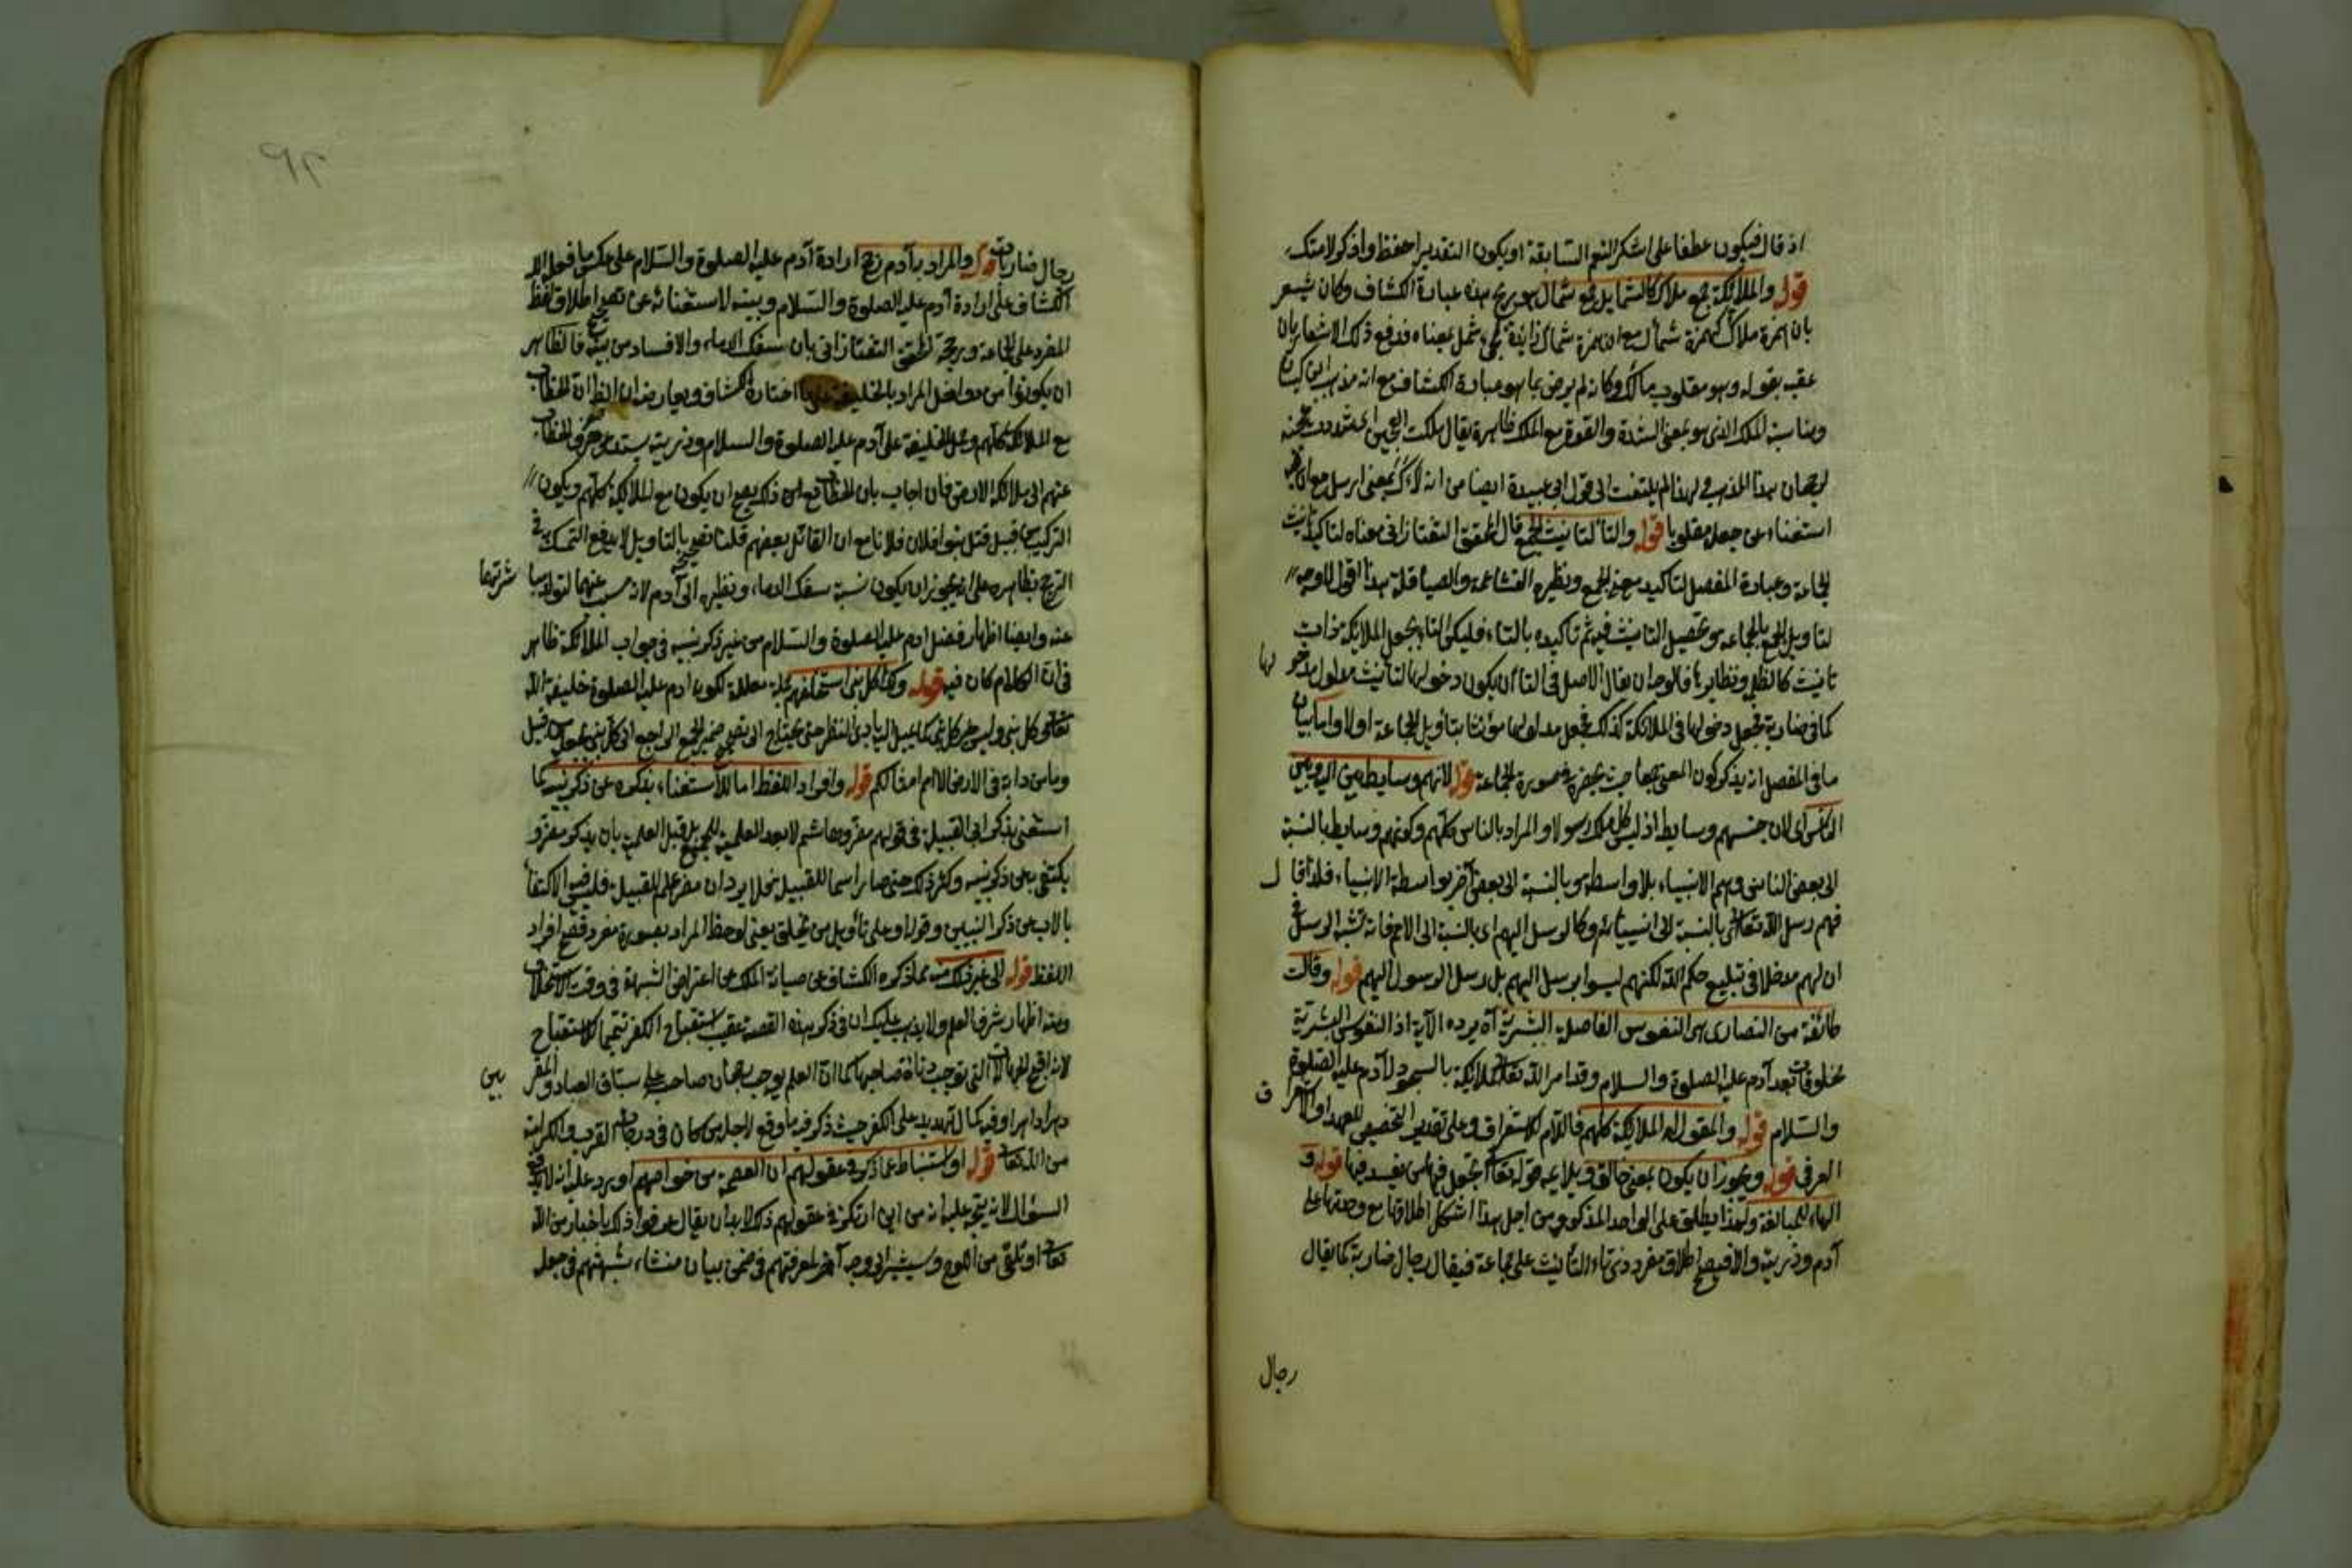 اذ قال فيكون عطفا على اشكر النعم السابقة او يكون التقدير احفظ واذكر لامتك
قوله والملائكة جمع ملاك كالشمايل جمع شمال هو بهذه عبارة الكشاف وكان يشعر
بان همزة ملاك كهمزة شمال مع ان همزة شمال زائدة بمعناه فدفع ذلك الاشعار بان
عقب بقوله وهو مقلوب مالك وكانه لم يرض بما هو عبارة الكشاف مع انه مذهب ابن كيسان
ومناسبة الملك الذي هو بمعنى الشدة والقوة مع الملك ظاهرة يقال ملكت العجين اى شددت عجنه
لرجحان هذا المذهب ولهذا لم يلتفت الى قول ابى عبيدة ايضا من انه لاك بمعنى ارسل مع ان فيه
استغناء عن جعله مقلوبا قوله والتا لتانيث الجمع قال المحقق التفتازانى معناه لتاكيد تانيث
الجماعة وعبارة المفصل لتاكيد معنى الجمع ونظيره القشاعمة والصياقلة هذا اقول لا وجه
لتاويل الجمع بالجماعة هو تحصيل التانيث فيه ثم تاكيده بالتاء فليكن التاء بجعل الملائكة ذات
تانيث كالظلمة ونظايرها فالوجه ان يقال الاصل فى التا ان يكون دخولها لتانيث مدلول مدخولها
كما فى ضاربة فجعل دخولها فى الملائكة كذلك بجعل مدلولها مؤنثا بتاويل الجماعة اولا واما بيان
ما فى المفصل انه يذكر كون المعنى جمعا حيث يحضره فى صورة الجماعة قوله لانهم وسايط بين الله وبين
الناس اى لان جنسهم وسايط اذ ليس كل ملك رسولا والمراد بالناس كلهم وكونهم وسايط بالنسبة
الى بعض الناس وهم الانبياء بلا واسطة وبالنسبة الى بعض آخر بواسطة الانبياء فلذا قال
فهم رسل الله تعالى بالنسبة الى انبيائه وكالرسل اليهم اى بالنسبة الى الامم فانه تشبه الرسل فى
ان لهم مدخلا فى تبليغ حكم الله لكنهم ليسوا برسل اليهم بل رسل الرسول اليهم قوله وقالت
طائفة من النصارى هى النفوس الفاضلة البشرية آه يرده الآية اذ النفوس البشرية
مخلوقات بعد آدم عليه الصلوة والسلام وقد امر الله تعالى الملائكة بالسجود لآدم عليه الصلوة
والسلام قوله والمقول له الملائكة كلهم فاللام للاستغراق وعلى تقدير التخصيص للعهد او الاستغراق
العرفى قوله ويجوز ان يكون بمعنى خالق ويلايمه قوله تعالى اتجعل فيها من يفسد فيها قوله و
الهاء للمبالغة ولهذا يطلق على الواحد المذكر ومن اجل هذا اشكل اطلاقها مع وحدتها على
آدم وذريته والا فيصح اطلاق مفرد ذى تاء التأنيث على جماعة فيقال رجال ضاربة كما يقال
رجال
رجال ضاربات قوله والمراد به آدم رجح ارادة آدم عليه الصلوة والسلام على عكس ما فعله
الكشاف على ارادة آدم عليه الصلوة والسلام وبينه لاستغنائه عن تصحيح اطلاق لفظ
المفرد على الجماعة ورجحه المحقق التفتازانى بان سفك الدماء والافساد من بنيه فالظاهر
ان يكونوا من المراد بالخليفة على ما اختاره الكشاف ويعارضه ان الظاهر ان الخطاب
مع الملائكة كلهم وحمل الخليفة على آدم عليه الصلوة والسلام وذريته يستدعى صرف الخطاب
عنهم الى ملائكة الارض فان اجاب بان الخطاب مع ذلك يصح ان يكون مع الملائكة كلهم ويكون
التركيب من قبيل قتل بنو فلان فلانا مع ان القاتل بعضهم قلنا تصحيحه بالتاويل لا يدفع التمسك فى
الترجيح بظاهره على انه يجوز ان يكون نسبة سفك الدماء ونظيره الى آدم لانه سبب عنهما لتولد مباشرتهما
عنه وايضا اظهار فضل آدم عليه الصلوة والسلام من غير ذكر بنيه فى جواب الملائكة ظاهر
فى ان الكلام كان فيه قوله وكذا كل نبى استخلفهم جملة معللة لكون آدم عليه الصلوة خليفة الله
تعالى كل نبى وليس خبر كل نبى كما يخيل لبادى النظر حتى يحتاج الى تصحيح ضمير الجمع الراجع الى كل نبى بجعله من قبيل
وما من دابة فى الارض الا امم امثالكم قوله وافراد اللفظ اما للاستغناء بذكره عن ذكر بنيه كما
استغنى بذكر ابى القبيلة فى قولهم مضر وهاشم لا بعد العلمية للجميع بل قبل العلمية بان يذكر مضر و
يكتفى به عن ذكر بنيه وكثر ذلك حتى صار اسما للقبيلة فلا يرد ان مضر علم للقبيلة فليس فيه الاكتفاء
بالاب عن ذكر البنين وقوله او على تأويل من يخلق يعنى لوحظ المراد بصورة مفرد فصح افراد
اللفظ قوله الى غير ذلك منه ما ذكره الكشاف من صيانة الملك عن اعتراض الشبهة فى وقت الاستخلاف
ومنه اظهار شرف العلم ولا يذهب عليك ان فى ذكر هذه القصة عقيب استقباح الكفر تتميما للاستقباح
لانه اقبح الجهالات التى توجب دناءة صاحبها كما ان العلم يوجب رجحان صاحبه على سباق العباد والمقربين
مرارا وفيه كمال تهديد على الكفر حيث ذكر فيه ما وقع لاجله من كان فى درجات القرب والكرامة
من الله تعالى قوله او استنباط عما ذكر فى عقولهم ان العصمة من خواصهم اورد عليه انه لا يدفع
السؤال لانه يتجه عليه انه من اين ارتكز فى عقولهم ذلك لا بد ان يقال عرفوا ذلك باخبار من الله
تعالى او تلقى من اللوح وسيشير الى وجه آخر لمعرفتهم فى ضمن بيان منشاء شبهتهم فى جعل